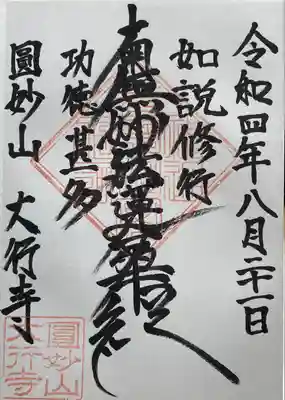 令和四年八月二十一日
如説修行
南無妙法蓮華経
功徳甚多
圓妙山 大行寺
圓妙山
大行寺